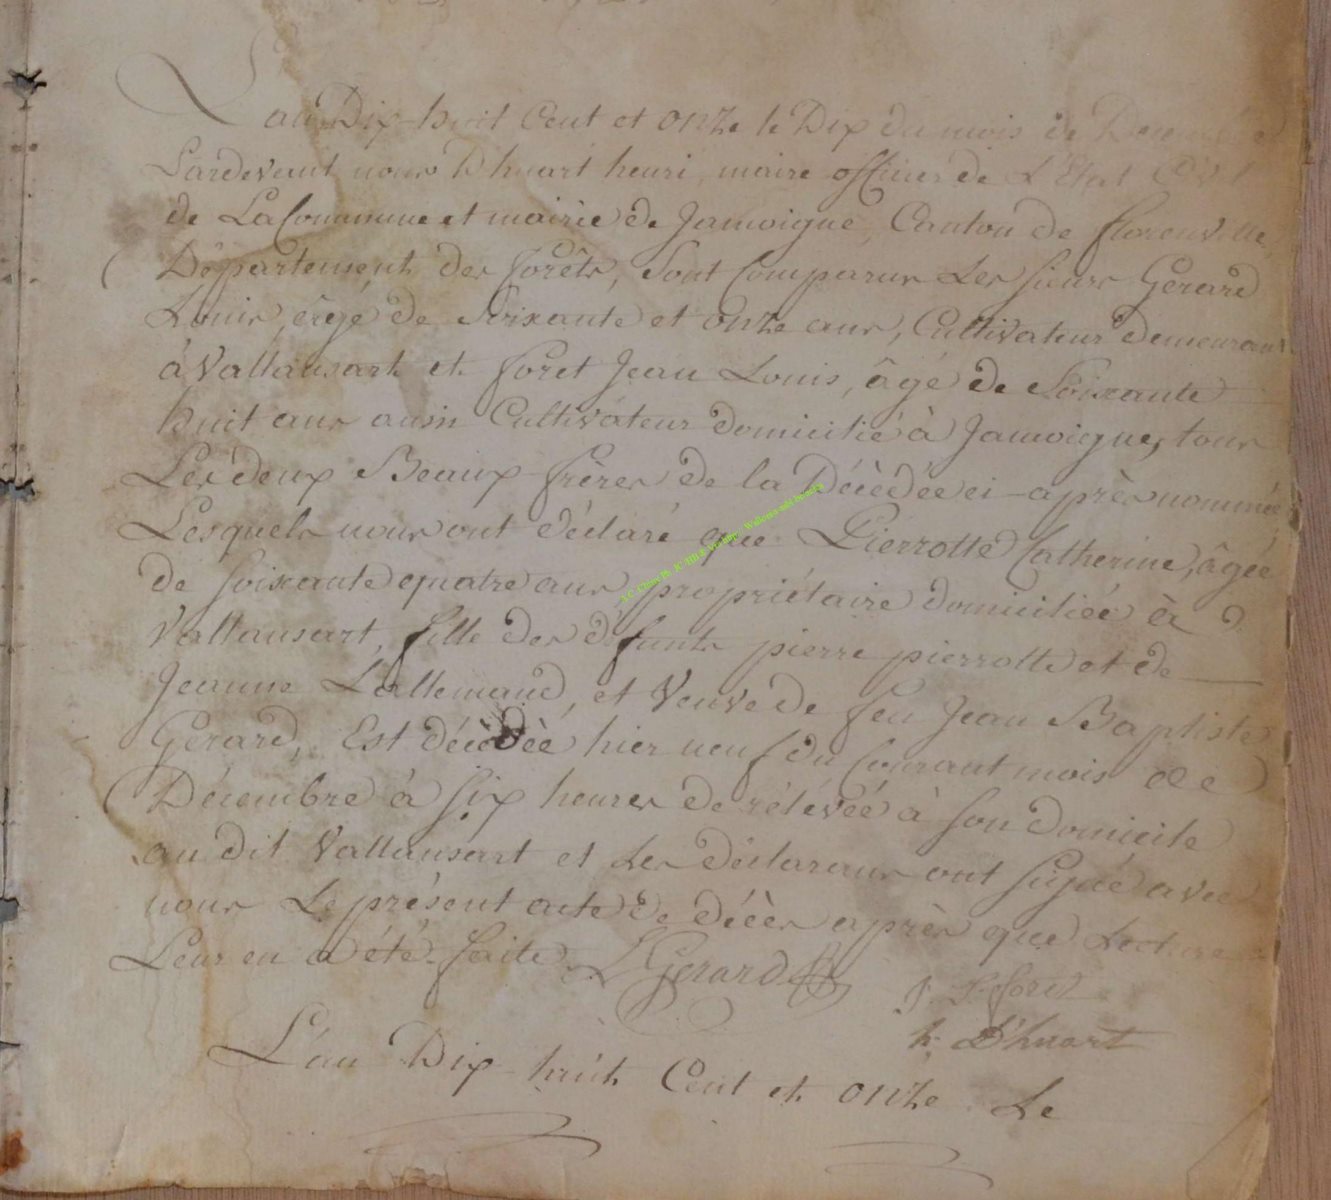 L'an Dix-huit Cent et onze le Dix du mois de Décembre
Pardevant nous D'huart henri, maire officier de L'Etat Civil
de La Commune et mairie de Jamoigne, Canton de florenville,
Département des forêts, Sont Comparus Les sieurs Gerard
Louis, âgé de Soixante et onze ans, Cultivateur demeurant
à Vallansart et foret Jean Louis, âgé de Soixante
huit ans aussi Cultivateur domicilié à Jamoigne, tous
Les deux Beaux-frères de la Décèdée ci-après nommée
Lesquels nous ont déclaré que Pierrotte Catherine, âgée
de soixante quatre ans, propriétaire domiciliée à
Vallansart, fille des défunts pierre pierrotte et de
Jeanne Lallemand, et Veuve de feu Jean Baptiste
Gerard, Est décèdèe hier neuf du Courant mois de
Décembre à six heures de rélévée à son domicile
au dit Vallansart et Les déclarans ont signé avec
nous Le présent acte de décès après que Lecture
Leur en a été faite. L Gerard
J. L. foret
h. D'huart
L'an Dix-huit Cent et onze Le